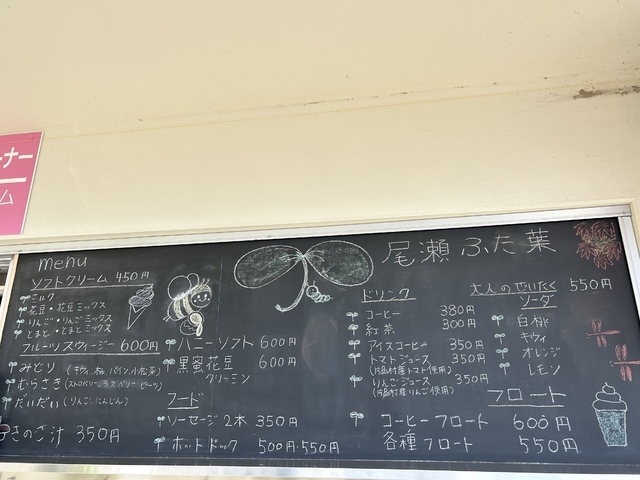 ーナー
ム
menu
ソフトクリーム 450円
ミルク
花豆・花豆ミックス
りんご・りんごミックス
とまと・とまとミックス
フルーツスウィージー 600円
みどり (キウィ、桃、パイン、小松菜)
むらさき (ストロベリー、ラズベリー、ビーツ)
だいだい (りんご、にんじん)
きのこ汁 350円
ハニーソフト 600円
黒蜜花豆 600円
クリーミン
フード
ソーセージ2本 350円
ホットドック 500円・550円
尾瀬ふた葉
ドリンク
コーヒー 380円
紅茶 300円
アイスコーヒー 350円
トマトジュース 350円
(片品村産トマト使用)
りんごジュース 350円
(片品村産りんご使用)
大人のぜいたく 550円
ソーダ
白桃
キウィ
オレンジ
レモン
フロート
コーヒーフロート 600円
各種フロート 550円